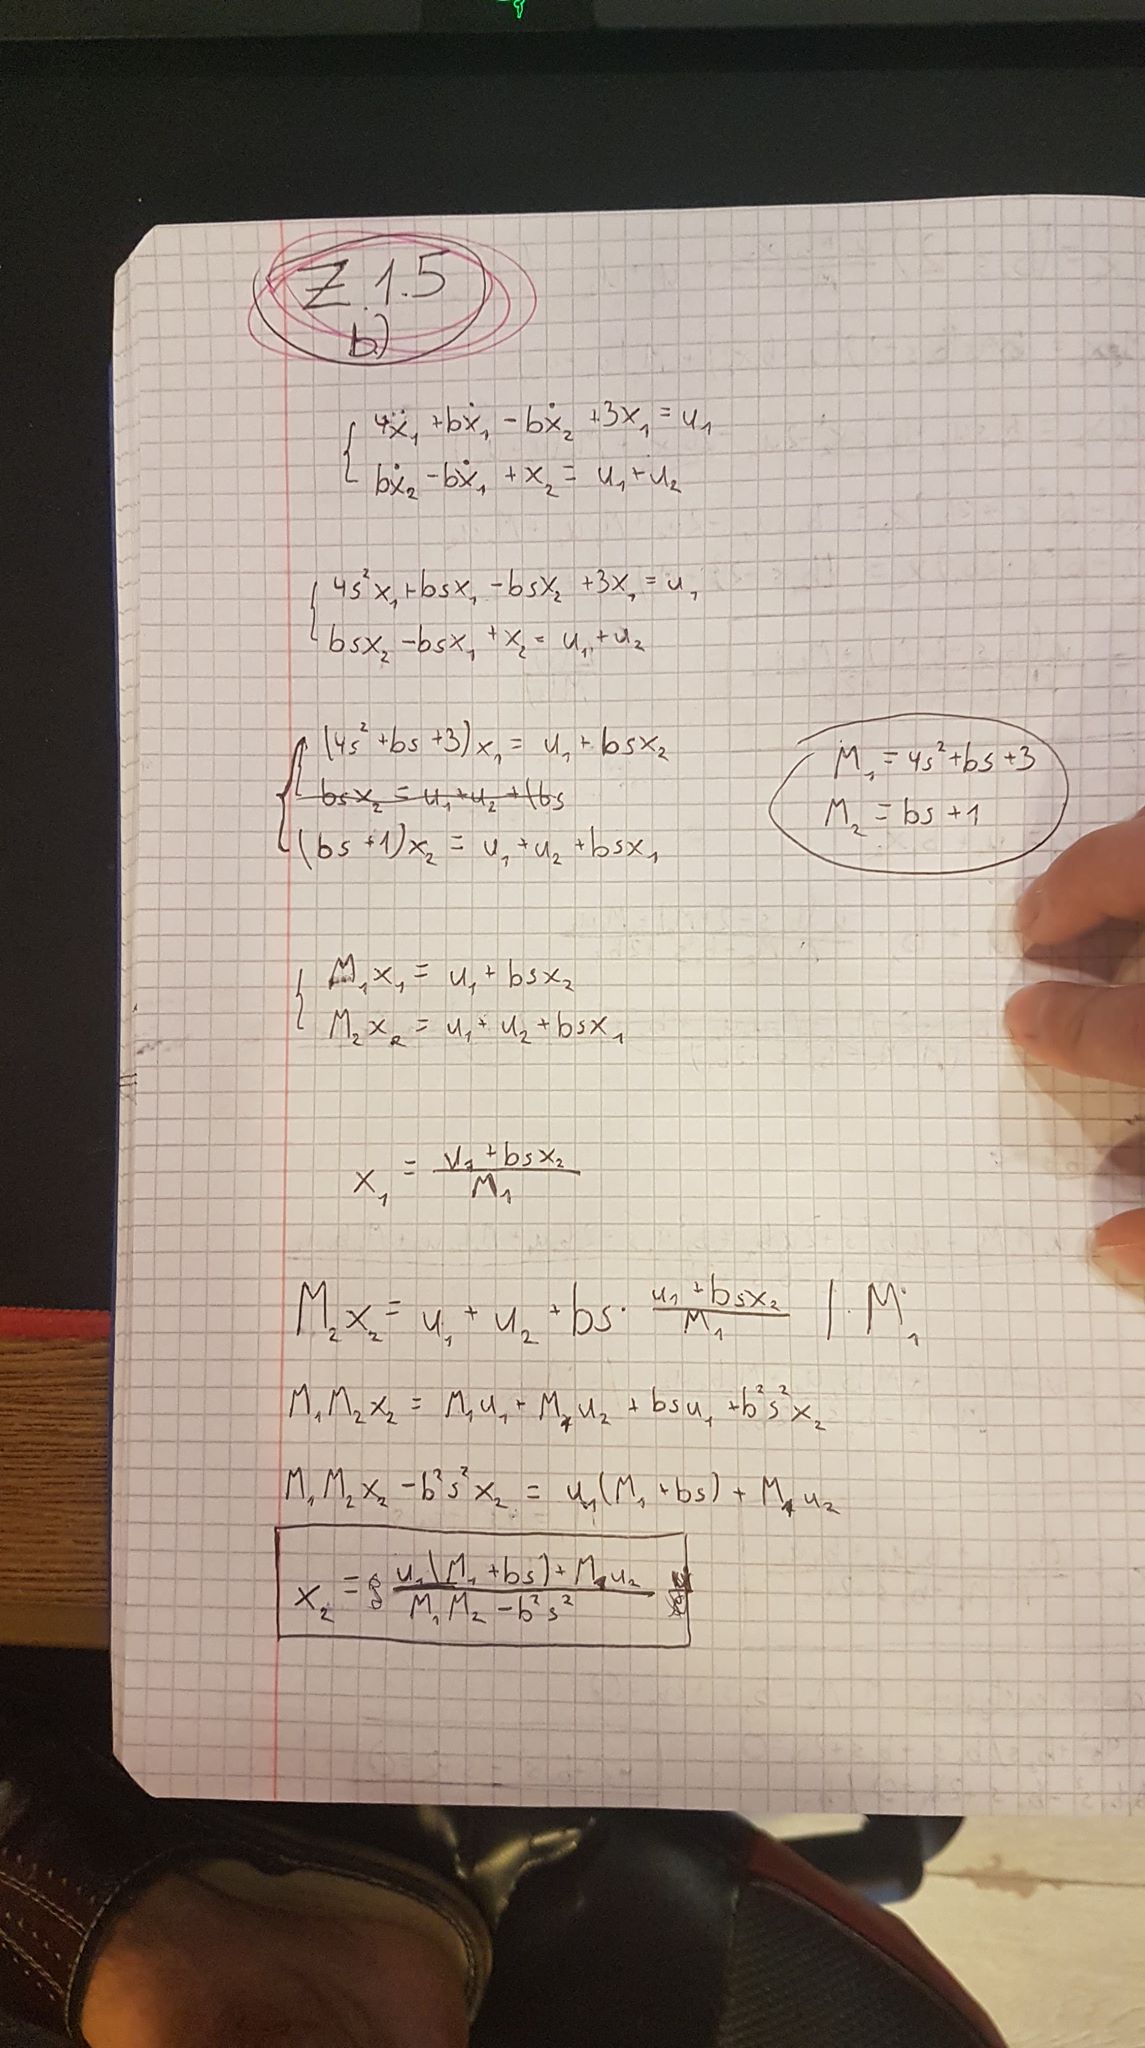 Z.1.5
b)
4ẍ₁ + bẋ₁ - bẋ₂ + 3x₁ = u₁
bẋ₂ - bẋ₁ + x₂ = u₁ + u₂
4s²x₁ + bsx₁ - bsx₂ + 3x₁ = u₁
bsx₂ - bsx₁ + x₂ = u₁ + u₂
(4s² + bs + 3)x₁ = u₁ + bsx₂
M₁ = 4s² + bs + 3
bsx₂ = u₁ + u₂ + (bs
M₂ = bs + 1
(bs + 1)x₂ = u₁ + u₂ + bsx₁
M₁x₁ = u₁ + bsx₂
M₂x₂ = u₁ + u₂ + bsx₁
x₁ = (u₁ + bsx₂)/M₁
M₂x₂ = u₁ + u₂ + bs · (u₁ + bsx₂)/M₁ | · M₁
M₁M₂x₂ = M₁u₁ + M₁u₂ + bsu₁ + b²s²x₂
M₁M₂x₂ - b²s²x₂ = u₁(M₁ + bs) + M₁u₂
x₂ = (u₁(M₁ + bs) + M₁u₂)/(M₁M₂ - b²s²)